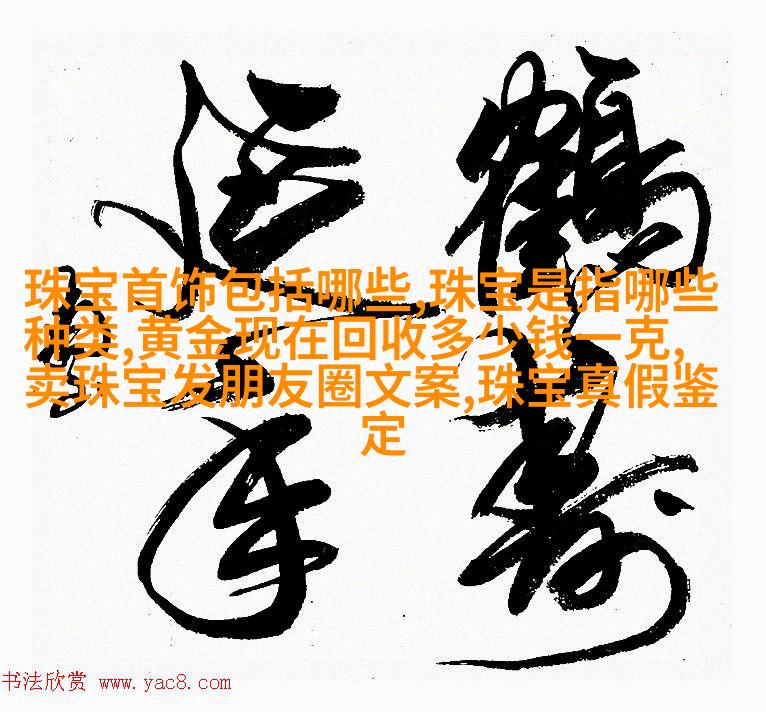 鹤寿
延年
珠宝首饰包括哪些,珠宝是指哪些
种类,黄金现在回收多少钱一克,
卖珠宝发朋友圈文案,珠宝真假鉴
定
书法欣赏 www.yac8.com